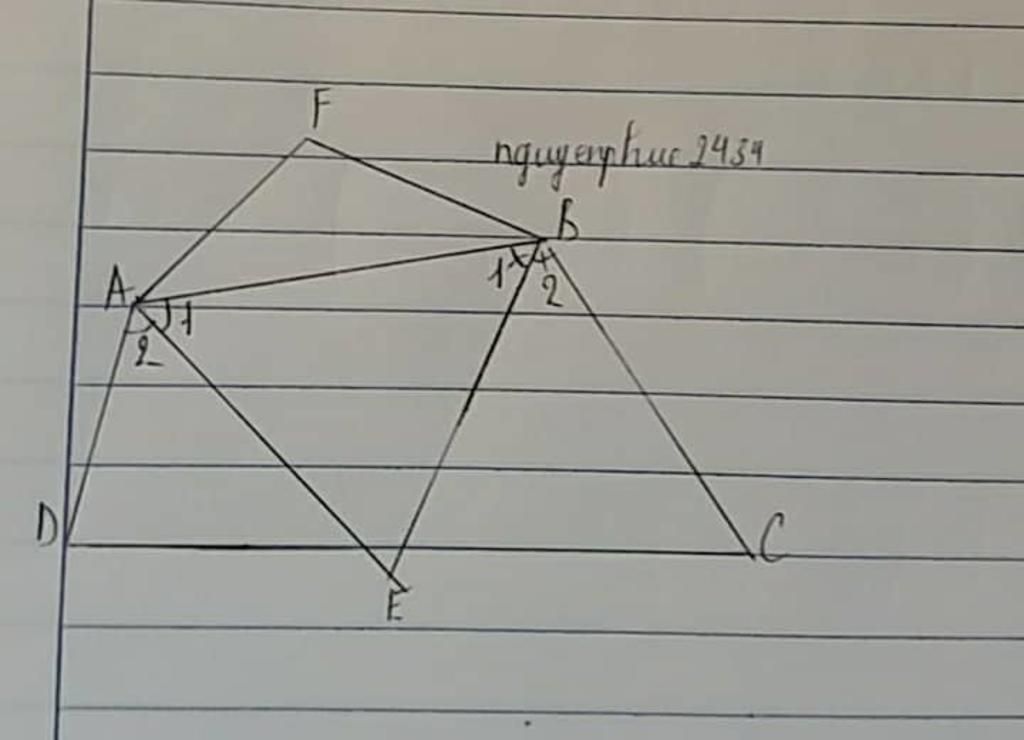 F
nguyenphuc2434
B
A
1
1
2
2
D
C
E